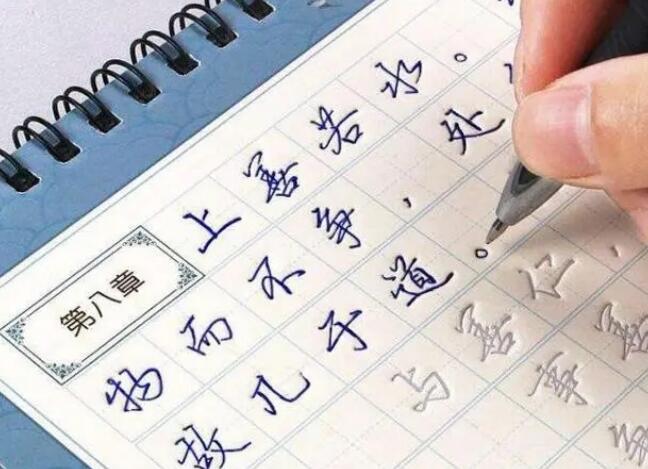 第八章
上善若水。
物而不争，处
故几于道。
与善仁，
事善